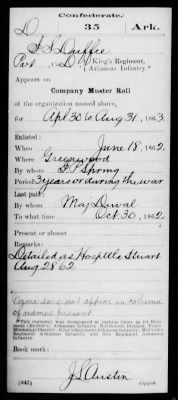 Confederate.
D 35 Ark.
Pvt., Co. D, King's Regiment,
Arkansas Infantry.*
Appears on
Company Muster Roll
of the organization named above,
for Apl 30 to Aug 31, 1863.
Enlisted:
When June 18, 1862.
Where Greenwood
By whom
Period 3 years or during the war
Last paid:
By whom Maj Duval
To what time Oct. 30, 1862.
Present or absent
Remarks:
Detailed as Hospittle Stuart
Aug 28 62
Name does not appear in column
of names present
Book mark:
J L Austin
(642) Copyist.